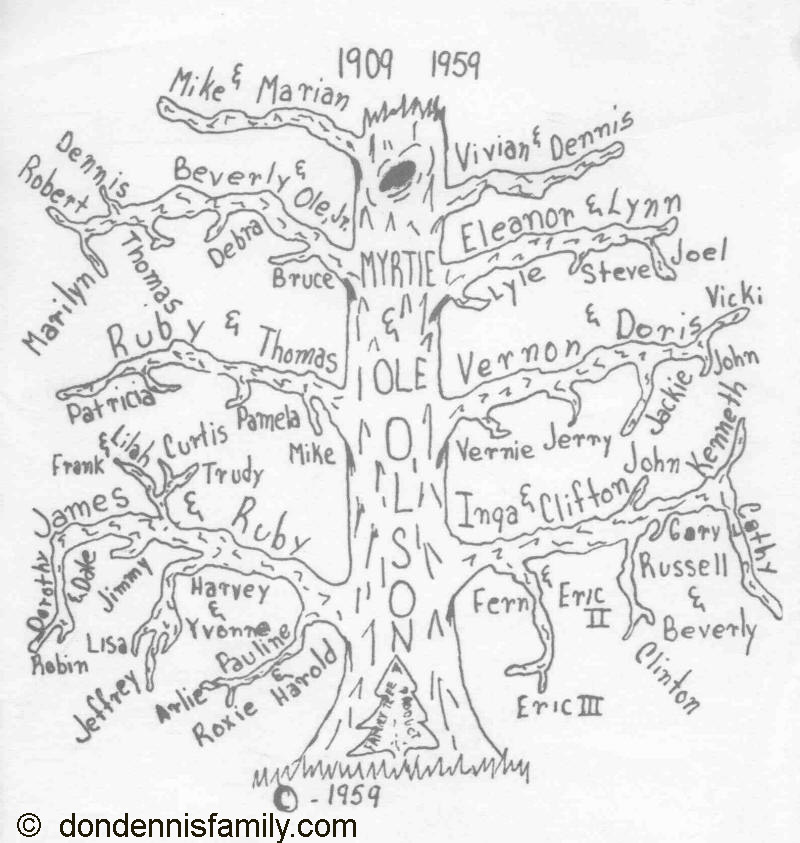 1909 1959
Mike & Marian
Vivian & Dennis
Dennis
Robert
Beverly & Ole, Jr.
Eleanor & Lynn
Marilyn
Thomas
Debra
Bruce
MYRTIE
&
OLE
OLSON
Lyle
Steve
Joel
Ruby & Thomas
Vernon & Doris
Vicki
Patricia
Pamela
Mike
Vernie
Jerry
Jackie
John
Frank & Lilah
Curtis
Trudy
James & Ruby
Inga & Clifton
John
Kenneth
Dorothy & Dale
Jimmy
Harvey
&
Yvonne
Robin
Lisa
Jeffrey
Pauline & Harold
Arlie
Roxie
Fern & Eric II
Eric III
Gary
Cathy
Russell
&
Beverly
Clinton
FAMILY TREE PRODUCT
© - 1959
© dondennisfamily.com